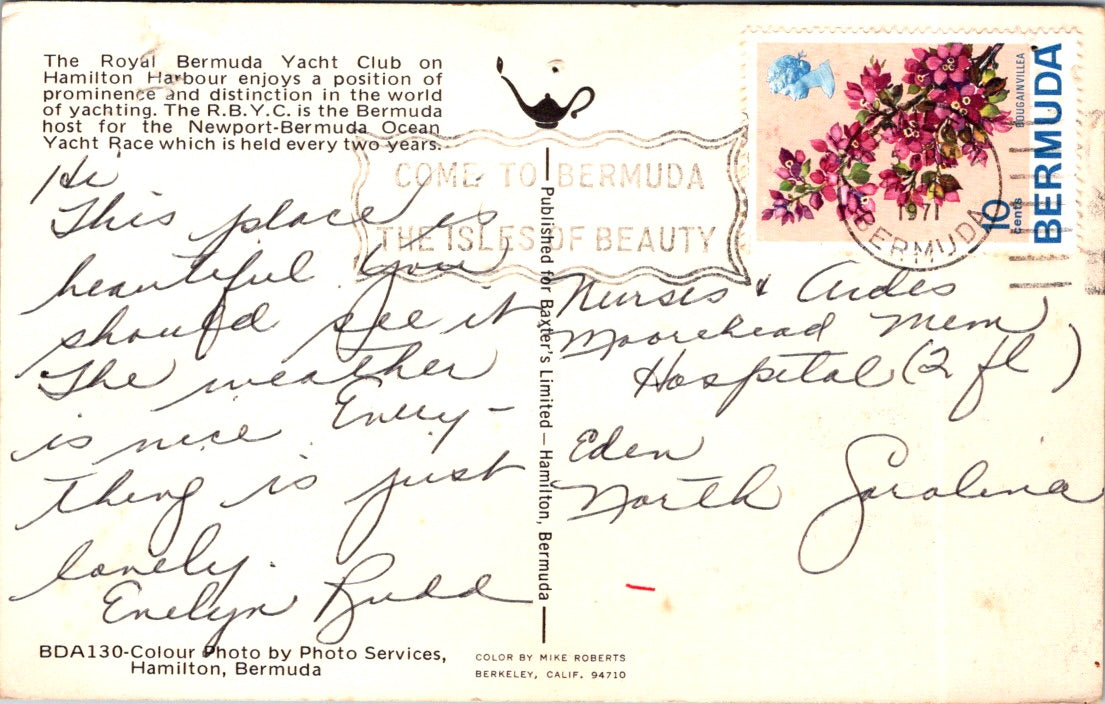 The Royal Bermuda Yacht Club on
Hamilton Harbour enjoys a position of
prominence and distinction in the world
of yachting. The R.B.Y.C. is the Bermuda
host for the Newport-Bermuda Ocean
Yacht Race which is held every two years.
Hi
This place is
beautiful you
should see it
The weather
is nice Every-
thing is just
lovely.
Evelyn Rudd
BDA130-Colour Photo by Photo Services,
Hamilton, Bermuda
COME TO BERMUDA
THE ISLES OF BEAUTY
Published for Baxter's Limited — Hamilton, Bermuda
BOUGAINVILLEA
BERMUDA
10
cents
1971
BERMUDA
Nurses & Aides
Moorehead Mem
Hospital (2 fl)
Eden
North Carolina
COLOR BY MIKE ROBERTS
BERKELEY, CALIF. 94710